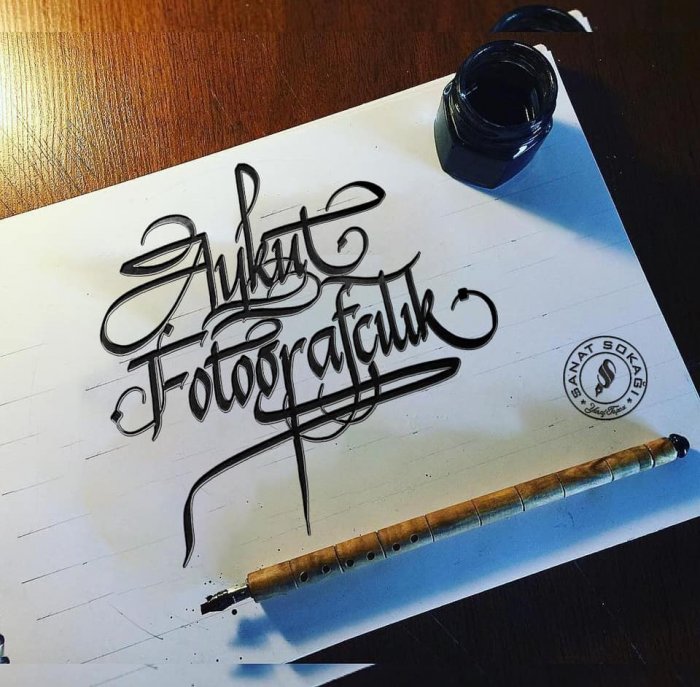 Aykut
Fotoğrafçılık
SANAT SOKAĞI